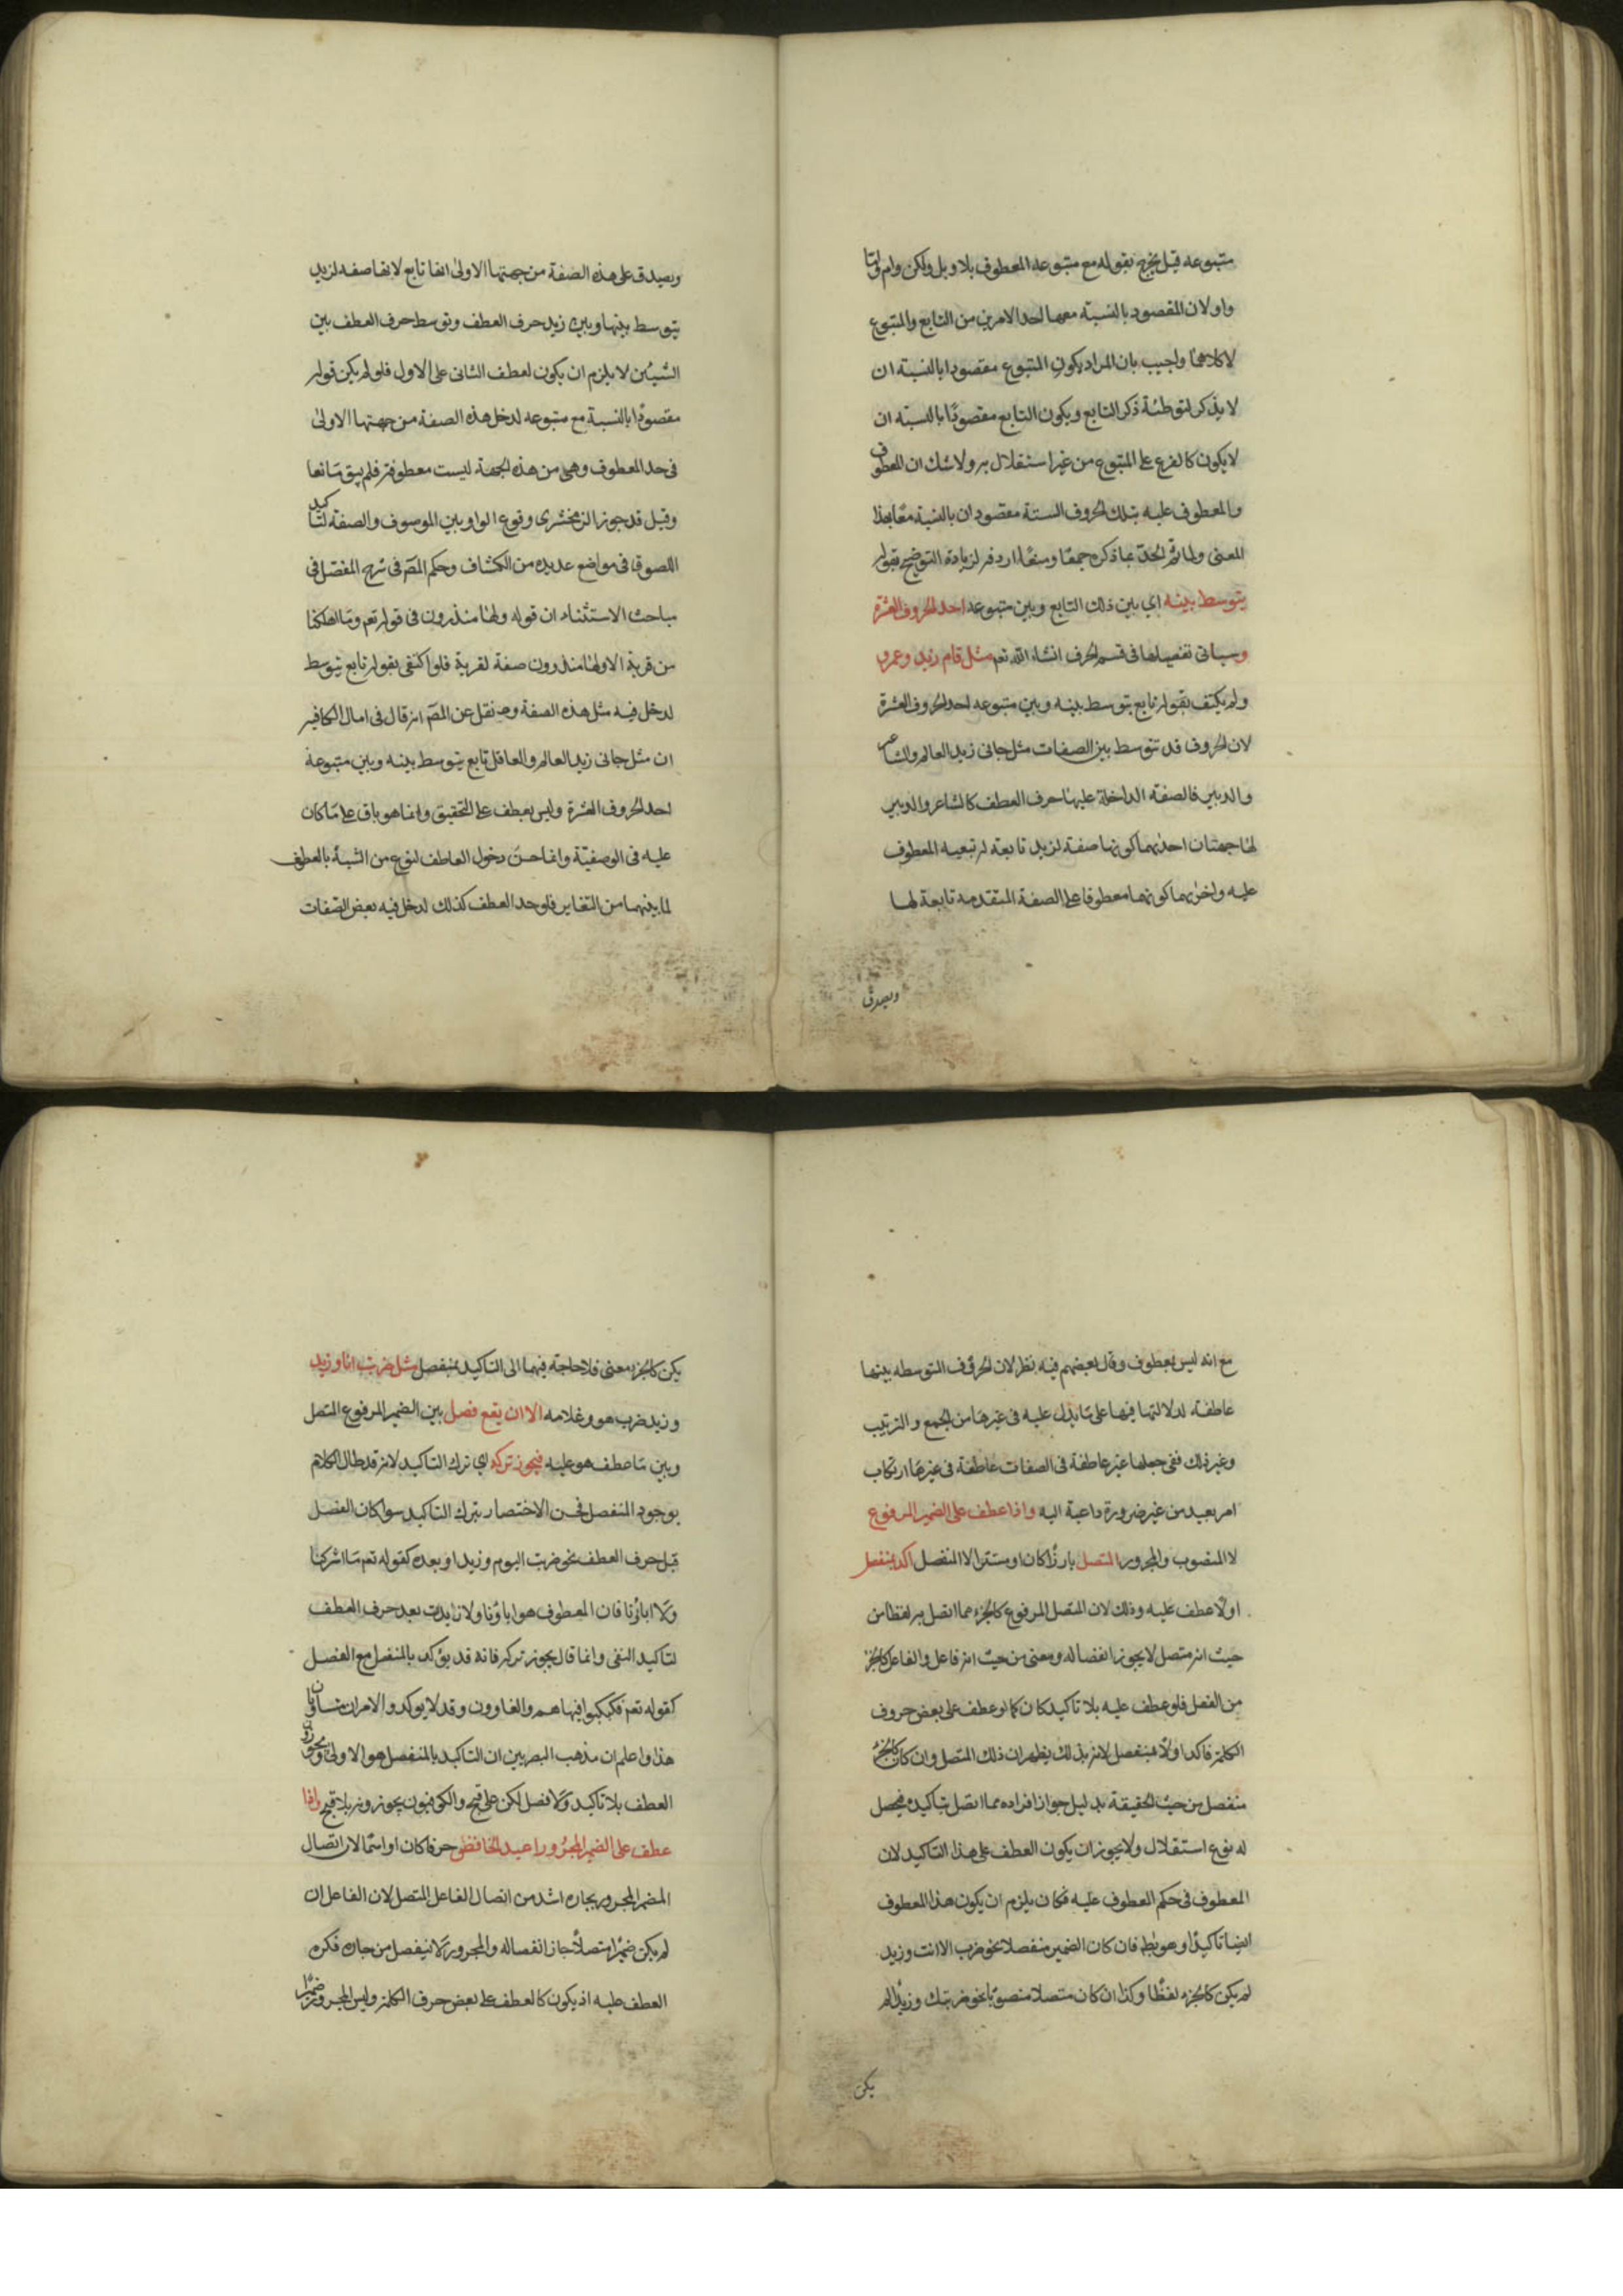 متبوعه قيل يخرج بقوله مع متبوعه المعطوف بلا وبل ولكن وام واما
واو لان المقصود بالنسبة معها احد الامرين من التابع والمتبوع
لا كلاهما واجيب بان المراد بكون المتبوع مقصودا بالنسبة ان
لا يذكر لتوطئة ذكر التابع ويكون التابع مقصودًا بالنسبة ان
لا يكون كالفرع على المتبوع من غير استقلال به ولا شك ان المعطوف
والمعطوف عليه بتلك الحروف الستة مقصودان بالنسبة معًا بهذا
المعنى ولما تم الحد بما ذكره جمعًا ومنعًا اردفه لزيادة التوضيح بقوله
يتوسط بينه اي بين ذلك التابع وبين متبوعه احد الحروف العشرة
وسياتى تفصيلها فى قسم الحرف انشاء الله تعم مثل قام زيد وعمرو
ولم يكتف بقوله تابع يتوسط بينه وبين متبوعه احد الحروف العشرة
لان الحروف قد تتوسط بين الصفات مثل جانى زيد العالم والشاعر
والدبير فالصفة الداخلة عليها حرف العطف كالشاعر والدبير
لها جهتان احدىهما كونها صفة لزيد تابعة له بتبعيه المعطوف
عليه واخرىهما كونها معطوفا على الصفة المتقدمه تابعة لها
ويصدق
ويصدق على هذه الصفة من جهتها الاولى انها تابع لانها صفه لزيد
يتوسط بينها وبين زيد حرف العطف وتوسط حرف العطف بين
الشيئين لا يلزم ان يكون لعطف الثانى على الاول فلو لم يكن قوله
مقصودًا بالنسبة مع متبوعه لدخل هذه الصفة من جهتها الاولى
فى حد المعطوف وهى من هذه الجهة ليست معطوفة فلم يبق مانعا
وقيل قد جوز الزمخشرى وقوع الواو بين الموصوف والصفة لتاكيد
اللصوق فى مواضع عديدة من الكشاف وحكم المصـ فى شرح المفصل فى
مباحث الاستثناء ان قوله ولها منذرون فى قوله تعم وما اهلكنا
من قرية الا ولها منذرون صفة لقرية فلو اكتفى بقوله تابع يتوسط
لدخل فيه مثل هذه الصفة و نقل عن المصـ انه قال فى امالى الكافيه
ان مثل جانى زيد العالم والعاقل تابع يتوسط بينه وبين متبوعه
احد الحروف العشرة وليس بعطف على التحقيق وانما هو باق على ما كان
عليه فى الوصفيّة وانما حسن دخول العاطف لنوع من الشبه بالعطف
لما بينهما من التغاير فلو حد العطف كذلك لدخل فيه بعض الصفات
مع انه ليس بمعطوف وقال بعضهم فيه نظر لان الحروف المتوسطه بينها
عاطفة لدلالتها فيها على ما يدل عليه فى غيرها من الجمع والترتيب
وغير ذلك ففى جعلها غير عاطفة فى الصفات عاطفة فى غيرها ارتكاب
امر بعيد من غير ضرورة داعية اليه واذا عطف على الضمير المرفوع
لا المنصوب والمجرور المتصل بارزًا كان او مستترا لا المنفصل اكد بمنفصل
اولًا عطف عليه وذلك لان المتصل المرفوع كالجزء مما اتصل به لفظا من
حيث انه متصل لا يجوز انفصاله ومعنى من حيث انه فاعل والفاعل كالجزء
من الفعل فلو عطف عليه بلا تاكيد كان كما لو عطف على بعض حروف
الكلمة فاكد اولًا بمنفصل لانه بذلك يظهر ان ذلك المتصل وان كان كالجزء
منفصل من حيث الحقيقة بدليل جواز افراده مما اتصل بتاكيده فيحصل
له نوع استقلال ولا يجوز ان يكون العطف على هذا التاكيد لان
المعطوف فى حكم المعطوف عليه فكان يلزم ان يكون هذا المعطوف
ايضا تاكيدًا وهو بط فان كان الضمير منفصلا نحو ضرب الا انت وزيد
لم يكن كالجزء لفظًا وكذا ان كان متصلا منصوبًا نحو ضربتك وزيدًا لم
يكن
يكن كالجزء معنى فلا حاجة فيهما الى التاكيد بمنفصل مثل ضربت انا وزيد
وزيد ضرب هو وغلامه الا ان يقع فصل بين الضمير المرفوع المتصل
وبين ما عطف هو عليه فيجوز تركه اي ترك التاكيد لانه قد طال الكلام
بوجود المنفصل فحسن الاختصار بترك التاكيد سواء كان الفصل
قبل حرف العطف نحو ضربت اليوم وزيد او بعده كقوله تعم ما اشركنا
ولا اباؤنا فان المعطوف هو اباؤنا ولا زايدت بعد حرف العطف
لتاكيد النفى وانما قال يجوز تركه فانه قد يؤكد بالمنفصل مع الفصل
كقوله تعم فكبكبوا فيها هم والغاوون وقد لا يوكد والامران متساويان
هذا واعلم ان مذهب البصريين ان التاكيد بالمنفصل هو الاولى ويجوزون
العطف بلا تاكيد ولا فصل لكن على قبح والكوفيون يجوزونه بلا قبح واذا
عطف على الضمير المجرور اعيد الخافض حرفا كان او اسمًا لان اتصال
الضمير المجرور بجاره اشد من اتصال الفاعل المتصل لان الفاعل ان
لم يكن ضميرًا متصلًا جاز انفصاله والمجرور لا ينفصل من جاره فكره
العطف عليه اذ يكون كالعطف على بعض حرف الكلمة وليس للمجرور ضمير